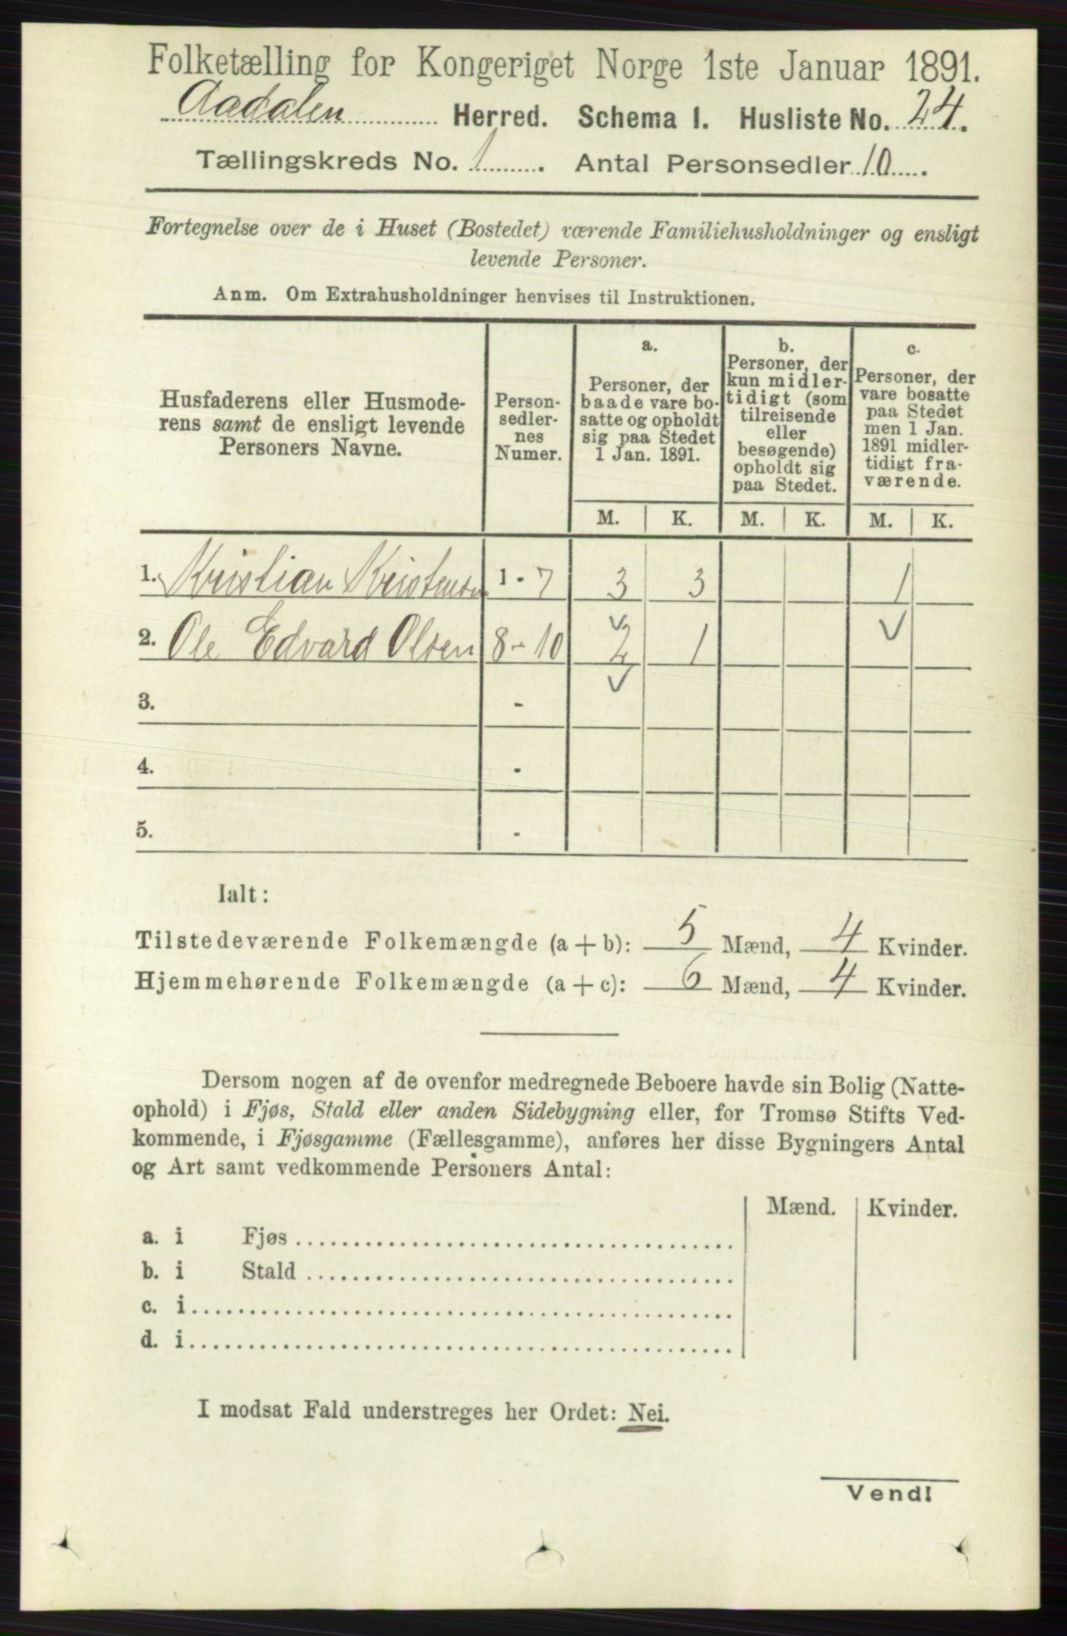 Folketælling for Kongeriget Norge 1ste Januar 1891.
Aadalen Herred. Schema I. Husliste No. 24.
Tællingskreds No. 1. Antal Personsedler 10.
Fortegnelse over de i Huset (Bostedet) værende Familiehusholdninger og ensligt
levende Personer.
Anm. Om Extrahusholdninger henvises til Instruktionen.
Husfaderens eller Husmode-
rens samt de ensligt levende
Personers Navne.
Person-
sedler-
nes
Numer.
a.
Personer, der
baade vare bo-
satte og opholdt
sig paa Stedet
1 Jan. 1891.
b.
Personer, der
kun midler-
tidigt (som
tilreisende
eller
besøgende)
opholdt sig
paa Stedet.
c.
Personer, der
vare bosatte
paa Stedet
men 1 Jan.
1891 midler-
tidigt fra-
værende.
M. K. M. K. M. K.
1. Kristian Kristensen 1 - 7 3 3 1
2. Ole Edvard Olsen 8 - 10 2 1
3. -
4. -
5. -
Ialt:
Tilstedeværende Folkemængde (a + b): 5 Mænd, 4 Kvinder.
Hjemmehørende Folkemængde (a + c): 6 Mænd, 4 Kvinder.
Dersom nogen af de ovenfor medregnede Beboere havde sin Bolig (Natte-
ophold) i Fjøs, Stald eller anden Sidebygning eller, for Tromsø Stifts Ved-
kommende, i Fjøsgamme (Fællesgamme), anføres her disse Bygningers Antal
og Art samt vedkommende Personers Antal:
Mænd. Kvinder.
a. i Fjøs
b. i Stald
c. i
d. i
I modsat Fald understreges her Ordet: Nei.
Vend!